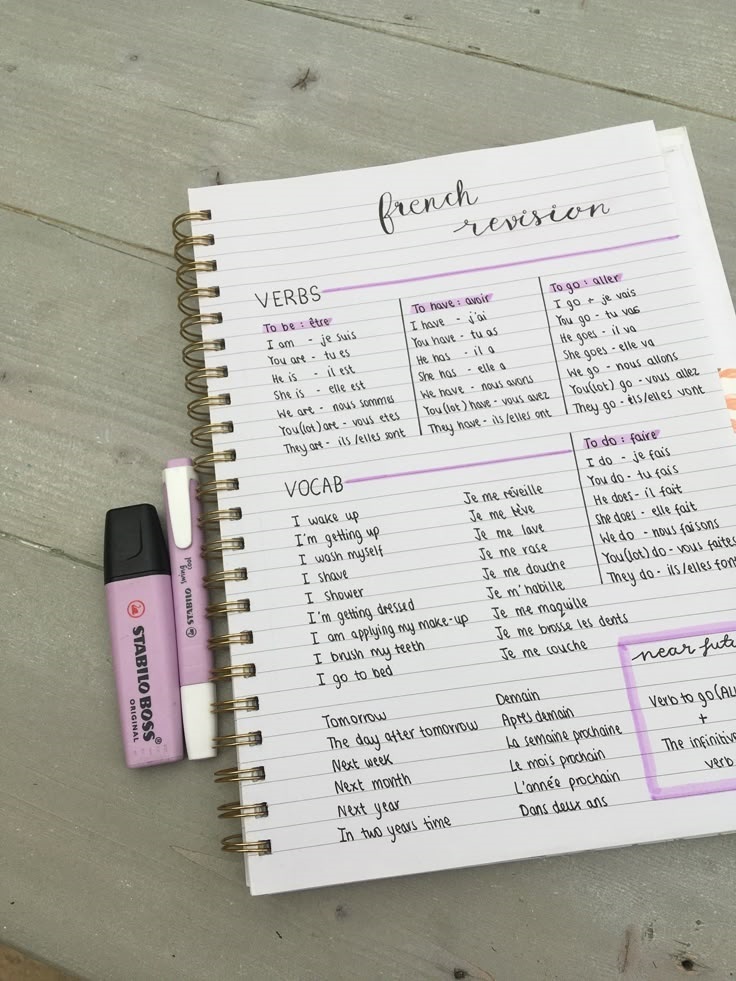 french
revision
VERBS
To be : être
I am - je suis
You are - tu es
He is - il est
She is - elle est
We are - nous sommes
You(lot) are - vous etes
They are - ils/elles sont
To have : avoir
I have - j'ai
You have - tu as
He has - il a
She has - elle a
We have - nous avons
You(lot) have - vous avez
They have - ils/elles ont
To go : aller
I go + je vais
You go - tu vas
He goes - il va
She goes - elle va
We go - nous allons
You(lot) go - vous allez
They go - ils/elles vont
To do : faire
I do - je fais
You do - tu fais
He does - il fait
She does - elle fait
We do - nous faisons
You(lot) do - vous faites
They do - ils/elles font
VOCAB
I wake up Je me réveille
I'm getting up Je me lève
I wash myself Je me lave
I shave Je me rase
I shower Je me douche
I'm getting dressed Je m'habille
I am applying my make-up Je me maquille
I brush my teeth Je me brosse les dents
I go to bed Je me couche
Tomorrow Demain
The day after tomorrow Après demain
Next week La semaine prochaine
Next month Le mois prochain
Next year L'année prochain
In two years time Dans deux ans
near
Verb to go
+
The
verb
STABILO BOSS
ORIGINAL
STABILO
swing
cool